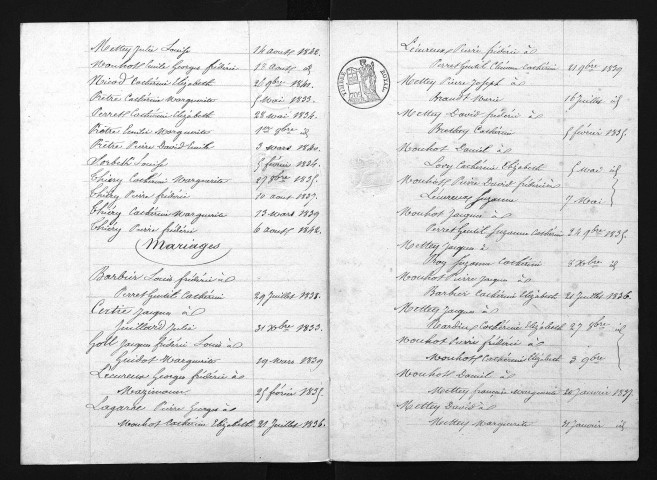 Mettey Julie Louise 14 aout 1842.
Mouhot Emile Georges frédéric 13 aout id
Nicod Catherine Elizabeth 2 9bre 1840.
Prêtre Catherine Marguerite 5 mai 1833.
Perret Catherine Elizabeth 28 mai 1834.
Prêtre Emilie Marguerite 1er 9bre id
Prêtre Pierre David Emile 3 mars 1840.
Sorbet Louise 5 février 1834.
Thiéry Catherine Marguerite 27 8bre 1835.
Thiéry Pierre frédéric 10 aout 1837.
Thiéry Catherine Marguerite 13 mars 1839
Thiéry Pierre frédéric 6 aout 1842.
Mariages
Barbier Louis frédéric à
Perret Gentil Catherine 29 Juillet 1838.
Certie Jacques à
Juillard Julie 31 Xbre 1833.
Goll Jacques frédéric Louis à
Guidot Marguerite 19 mars 1839
Lécureux Georges frédéric à
Mazimann 25 février 1835.
Lazarre Pierre Georges à
Mouhot Catherine Elizabeth 21 Juillet 1836.
Lécureux Pierre frédéric à
Perret Gentil Catherine 21 9bre 1839
Mettey Pierre Joseph à
Brandt Marie 16 Juillet id
Mettey David frédéric à
Berthey Catherine 5 février 1835.
Mouhot Daniel à
Lovy Catherine Elizabeth 5 Mai id
Mouhot Pierre David frédéric à
Lécureux Suzanne 7 Mai
Mouhot Jacques à
Perret Gentil Suzanne Catherine 24 9bre 1835.
Mettey Jacques à
Roy Suzanne Catherine 8 Xbre id
Mouhot Pierre Jacques à
Barbier Catherine Elizabeth 21 Juillet 1836.
Mettey Jacques à
Mardin Catherine Elizabeth 27 8bre id
Mouhot Pierre frédéric à
Mouhot Catherine Elizabeth 3 9bre
Mouhot Daniel à
Mettey françoise Marguerite 20 Janvier 1837.
Mettey David à
Mettey Marguerite 31 Janvier id